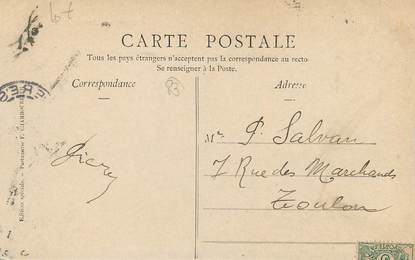 CARTE POSTALE
Tous les pays étrangers n'acceptent pas la correspondance au recto
Se renseigner à la Poste.
Correspondance
Adresse
Mr P. Salvan
7 Rue des Marchands
Toulon